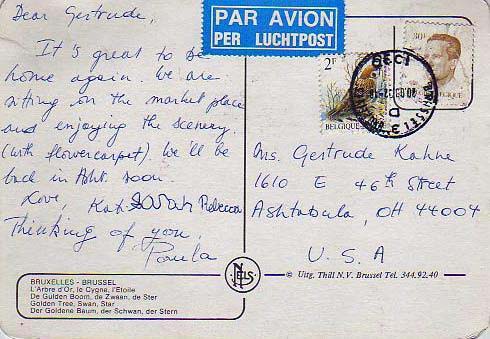 Dear Gertrude,
It's great to be
home again. We are
sitting on the market place
and enjoying the scenery.
(with flowercarpet). We'll be
back in Asht. soon.
Love, Kat. Sarah Rebecca
Thinking of you,
Paula
BRUXELLES - BRUSSEL
L'Arbre d'Or, le Cygne, l'Etoile
De Gulden Boom, de Zwaan, de Ster
Golden Tree, Swan, Star
Der Goldene Baum, der Schwan, der Stern
NELS
PAR AVION
PER LUCHTPOST
2F
BELGIQUE
30F
1390
Ms. Gertrude Kahne
1610 E 46th Street
Ashtabula, OH 44004
U.S.A
© Uitg. Thill N.V. Brussel Tel. 344.92.40